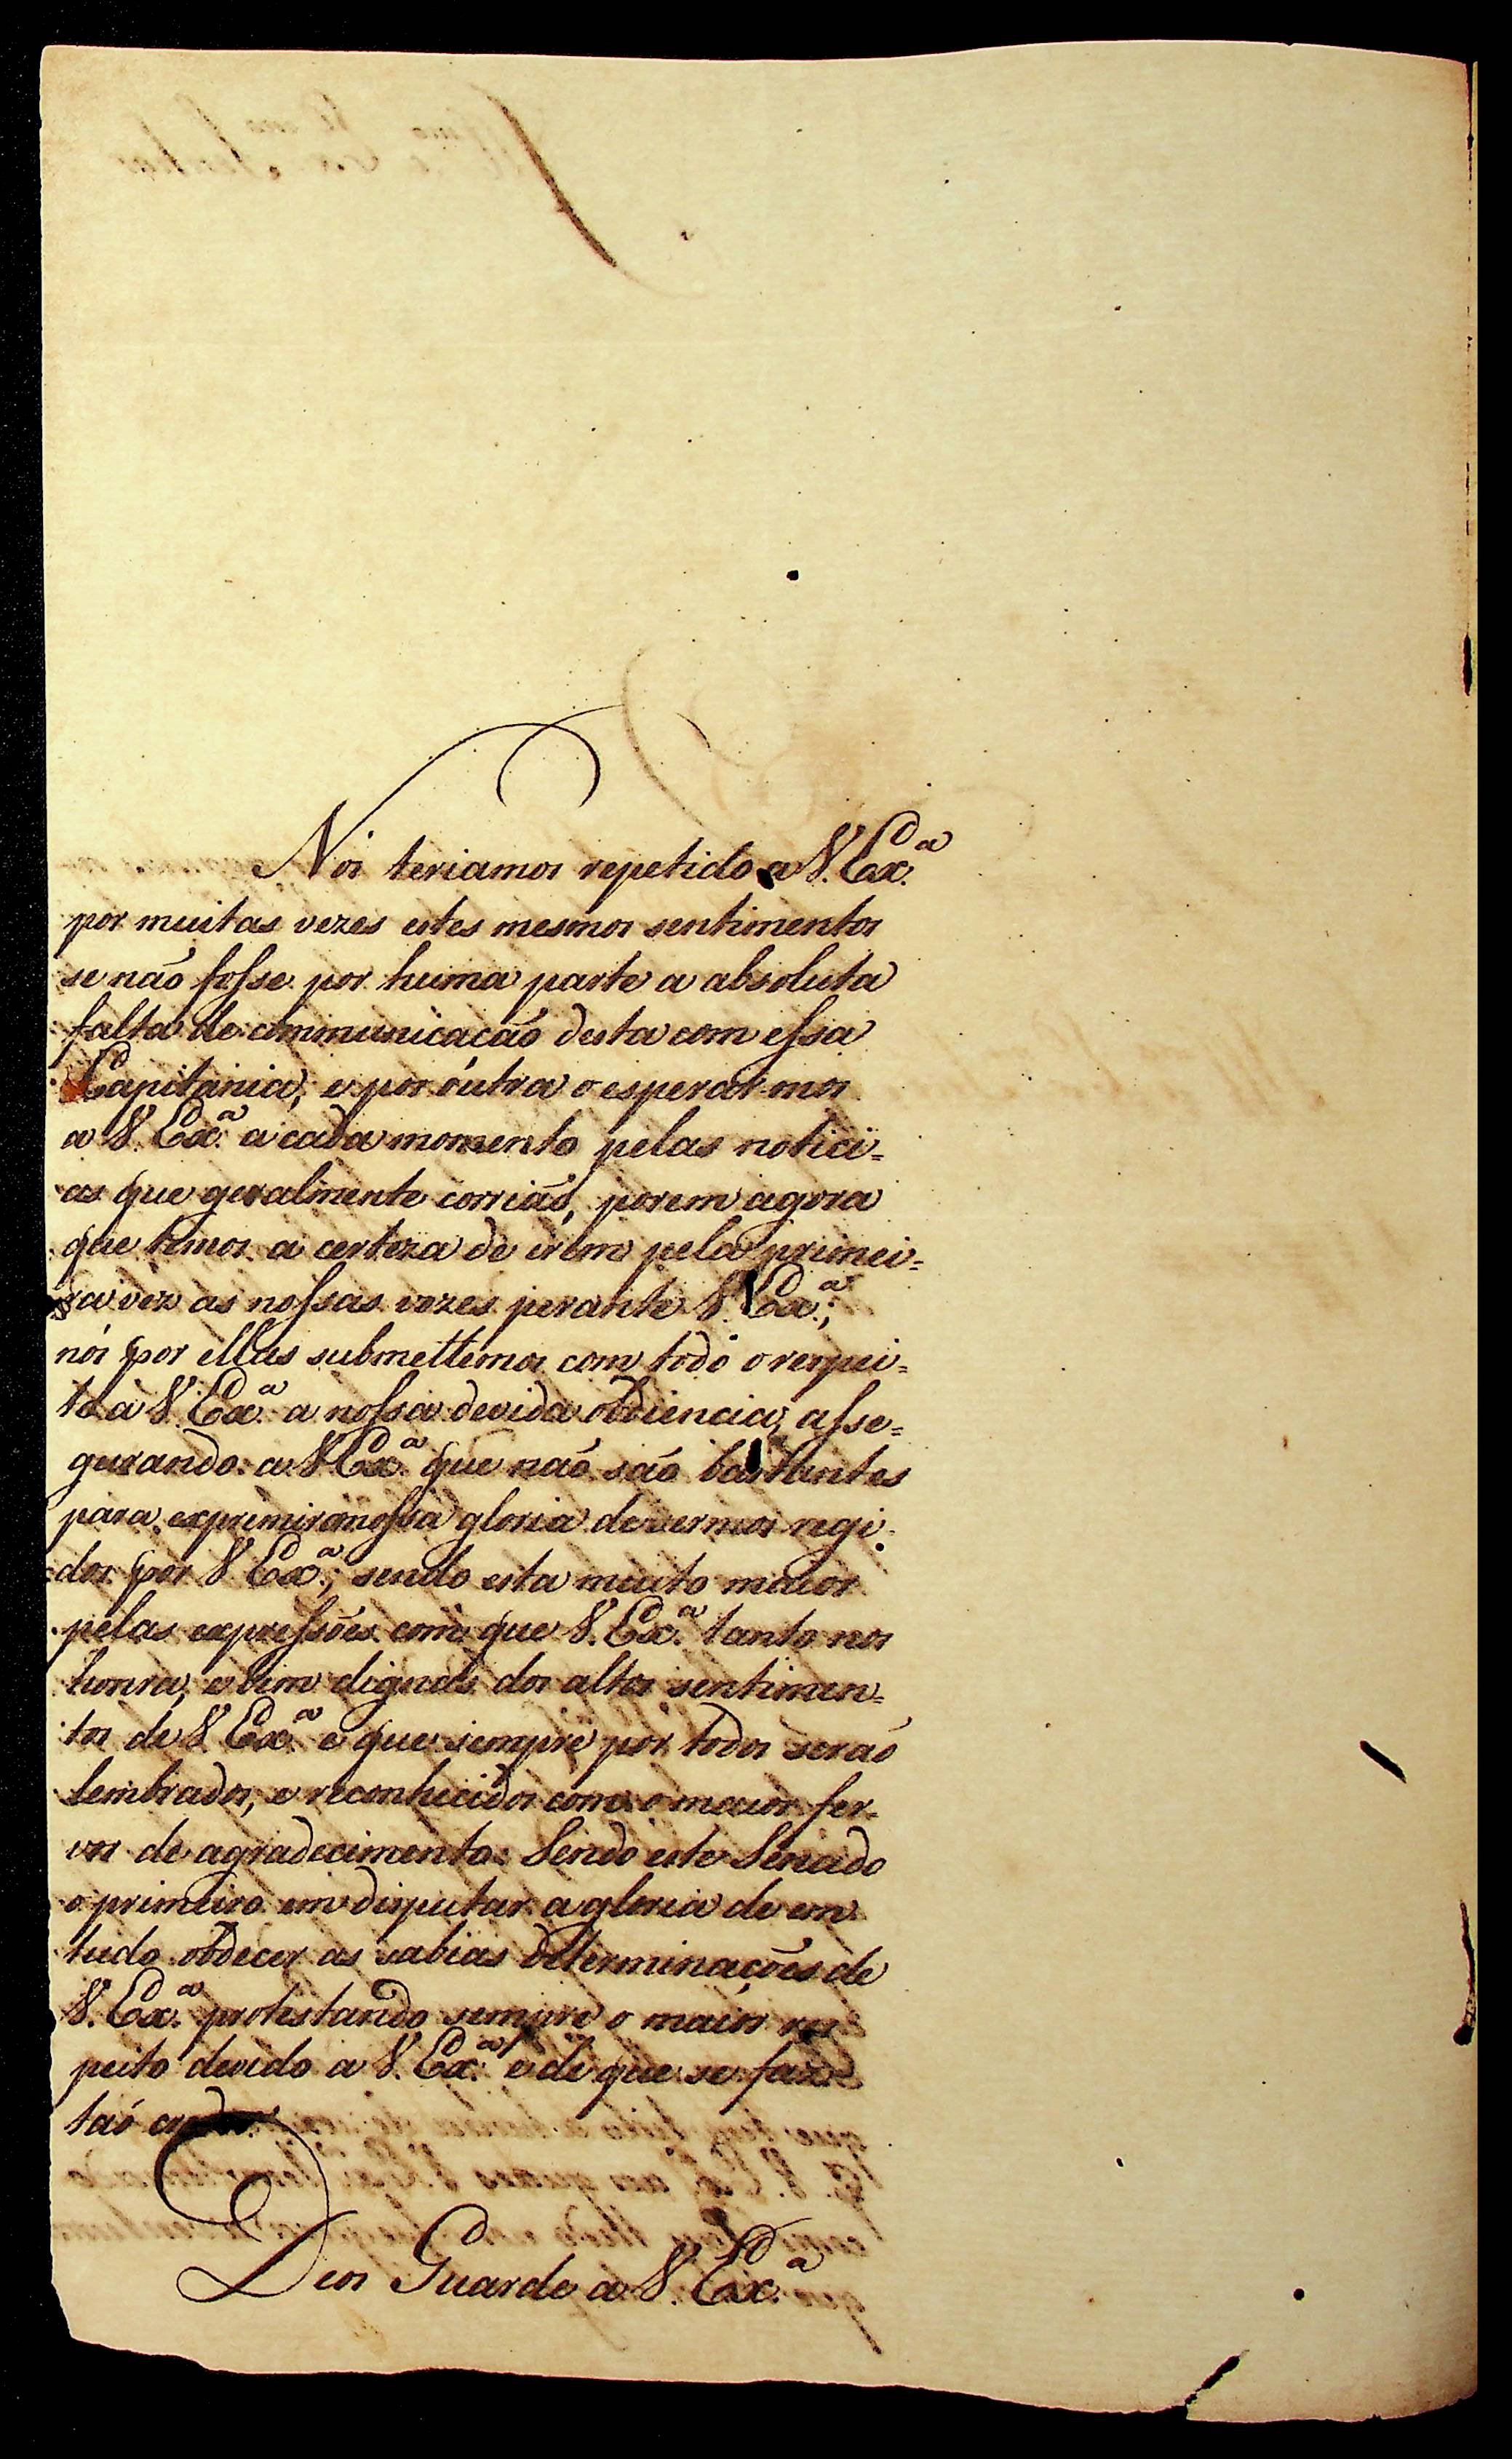 Nós teriamos repetido a V. Exª
por muitas vezes estes mesmos sentimentos
se não fosse por huma parte a absoluta
falta de communicação desta com essa
Capitania; e por outra o esperarmos
a V. Exª a cada momento pelas notici=
as que geralmente corrião, porem agora
que temos a certeza de irem pela primei=
ra vez as nossas vozes perante V. Exª;
nós por ellas submettemos com todo o respei=
to a V. Exª a nossa devida obdiencia, asse=
gurando a V. Exª que não são bastantes
para exprimir a nossa gloria de vermos regi=
dos por V. Exª; sendo esta muito maior
pelas expressões com que V. Exª tanto nos
honra, e bem dignas dos altos sentimen=
tos de V. Exª e que sempre por todos serão
lembrados, e reconhecidos com o maior fer=
vor de agradecimento. Sendo este Senado
o primeiro em disputar a gloria de em
tudo obdecer as sabias determinações de
V. Exª protestando sempre o maior res
peito devido a V. Exª e de que se faz
tão
Deos Guarde a V. Exª